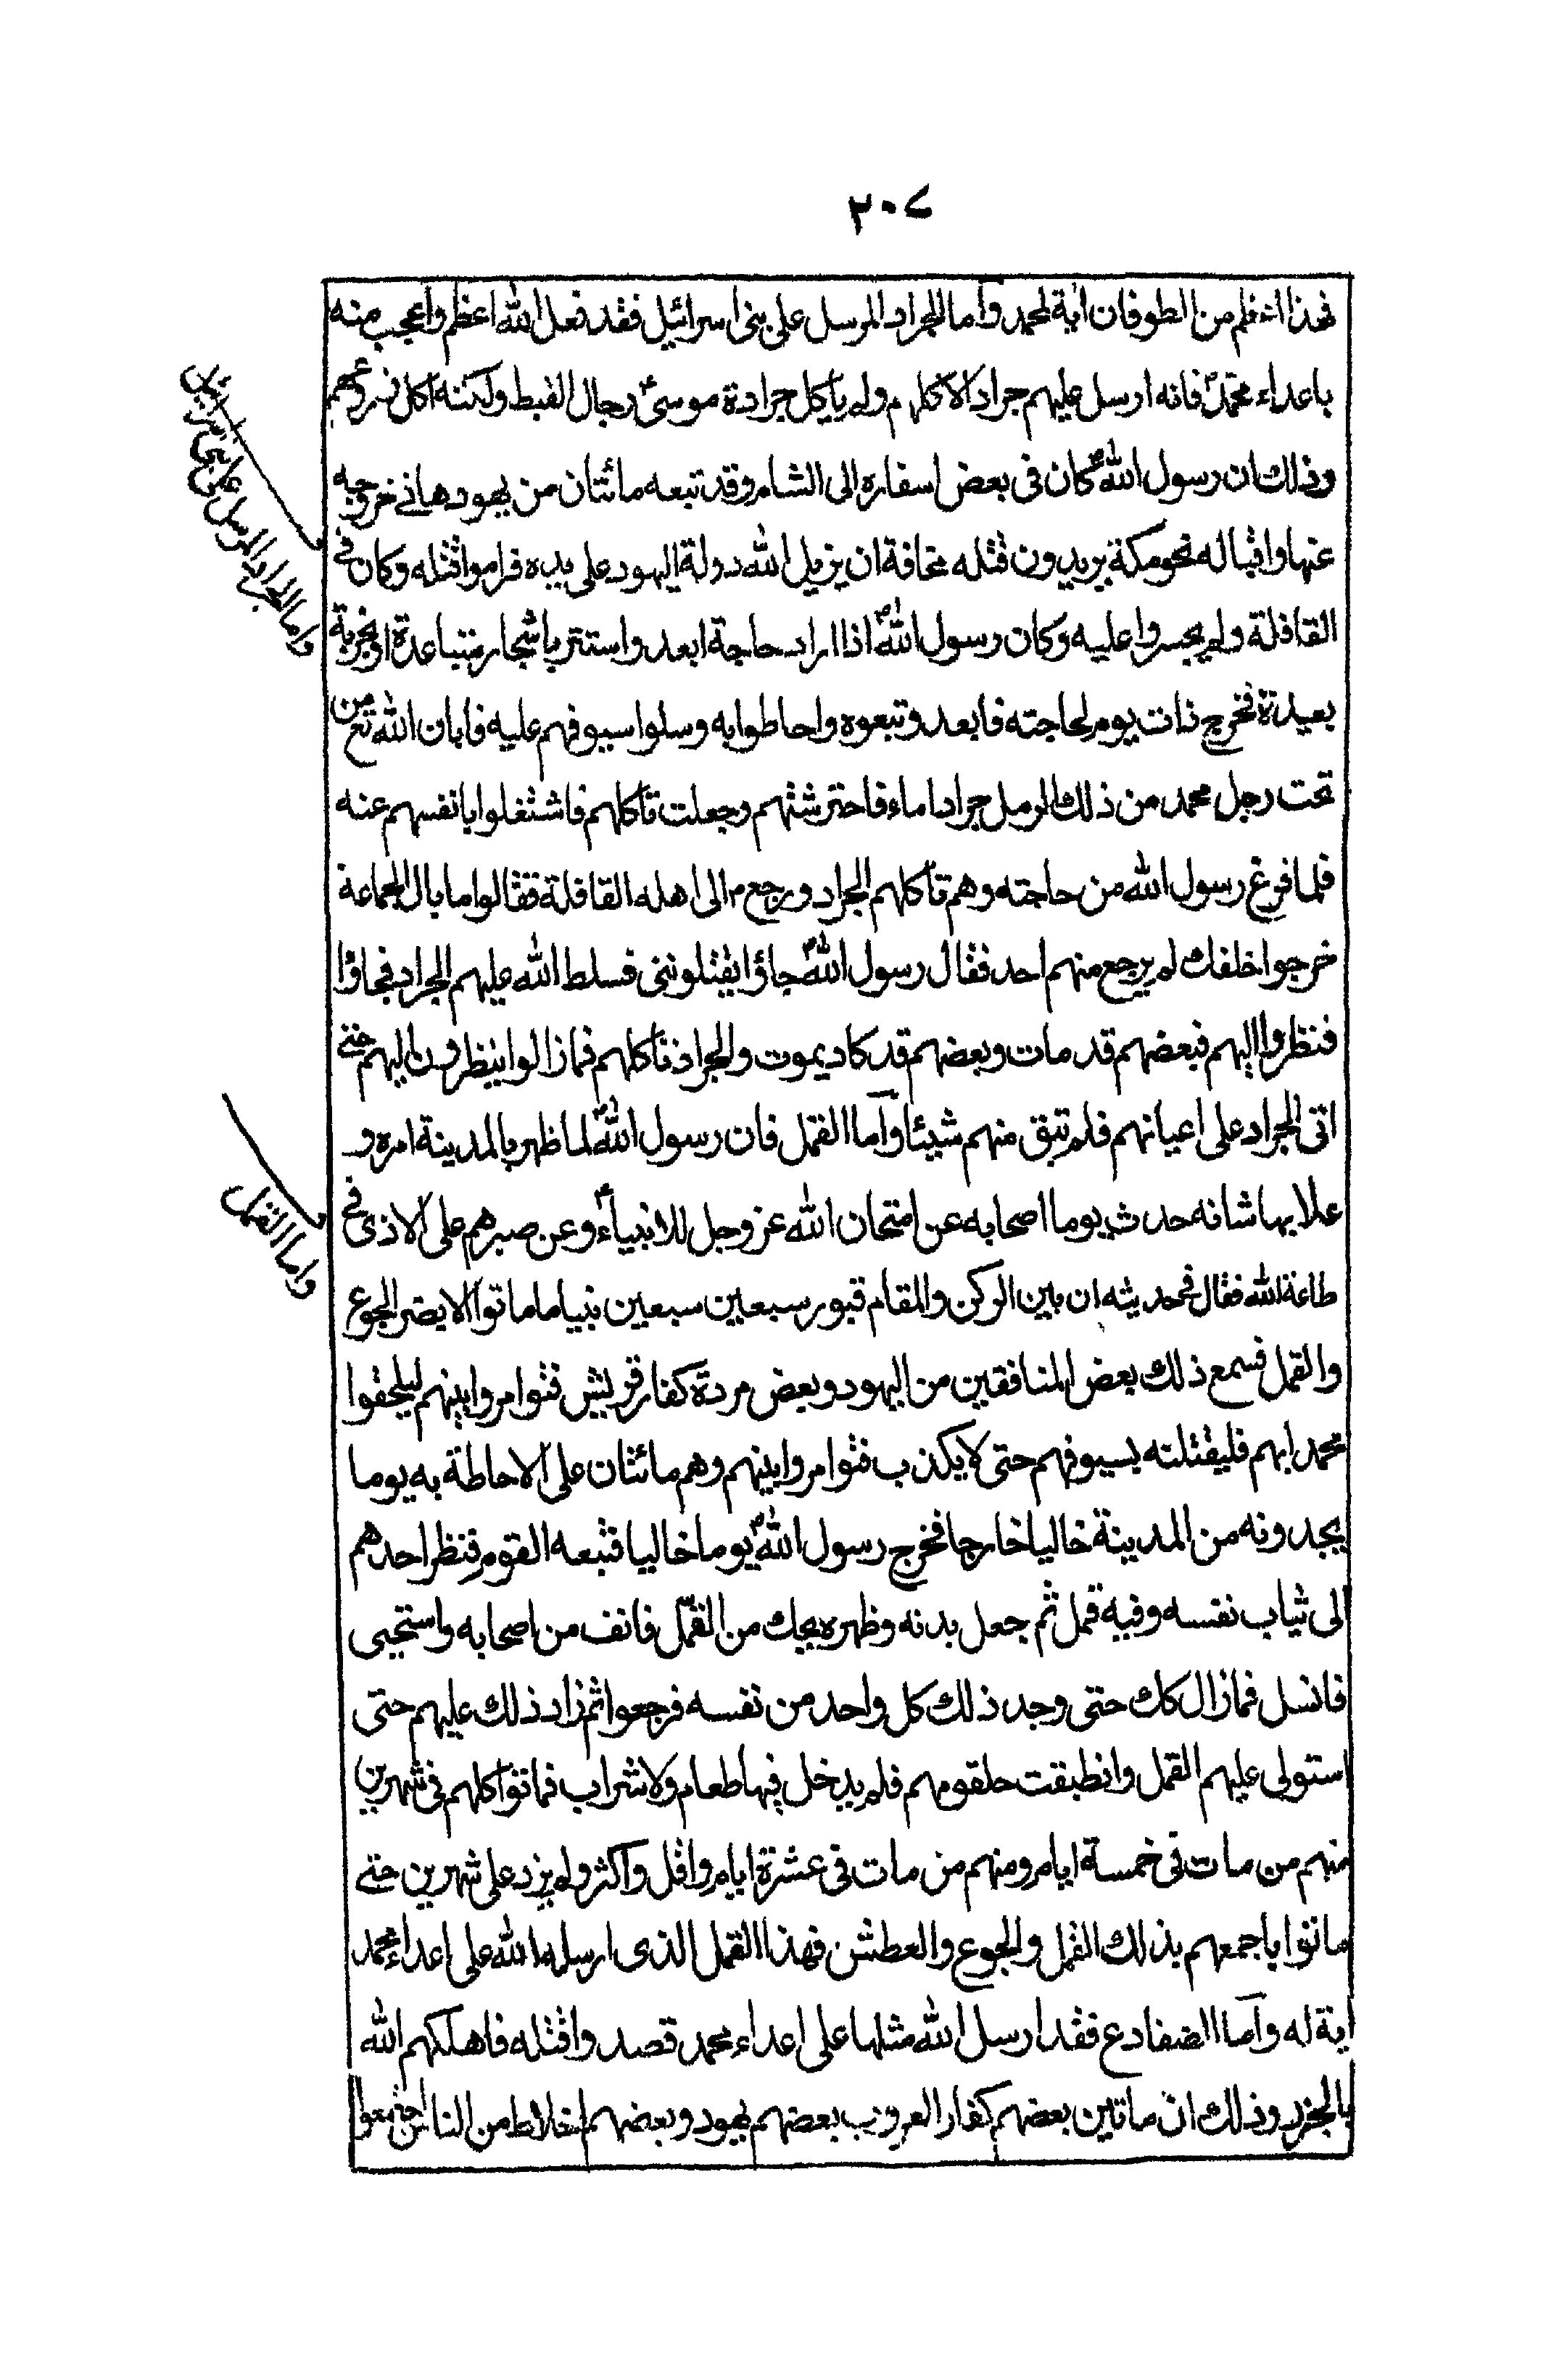 ٢٠٧
فهذا اعظم من الطوفان اية لمحمد وأما الجراد المرسل على بنى اسرائيل فقد فعل الله اعظم واعجب منه
باعداء محمدؐ فانه ارسل عليهم جرادا اكلهم ولم يأكل جرادة موسىؑ رجال القبط ولكنه اكل زروعهم
وذلك ان رسول اللهؐ كان فى بعض اسفاره الى الشام وقد تبعه مائتان من يهودها فى خروجه
عنها واقباله نحو مكة يريدون قتله مخافة ان يزيل الله دولة اليهود على يده فراموا قتله وكان فى
القافلة ولم يجسروا عليه وكان رسول اللهؐ اذا اراد حاجة ابعد واستتر باشجار متباعدة او بخربة
بعيدة فخرج ذات يوم لحاجته فابعد وتبعوه واحاطوا به وسلوا سيوفهم عليه فابان الله تع من
تحت رجل محمد من ذلك الرمل جرادا ماء فاحترشتهم وجعلت تأكلهم فاشتغلوا بانفسهم عنه
فلما فرغ رسول الله من حاجته وهم تأكلهم الجراد ورجع م الى اهله القافلة فقالوا ما بال الجماعة
خرجوا خلفك لم يرجع منهم احد فقال رسول اللهؐ جاؤا يقتلوننى فسلط الله عليهم الجراد فجاؤا
فنظروا اليهم فبعضهم قد مات وبعضهم قد كاد يموت والجراد تأكلهم فما زالوا ينظرون اليهم حتى
اتى الجراد على اعيانهم فلم تبق منهم شيئا وأما القمل فان رسول اللهؐ لما ظهر بالمدينة امره و
علا بها شانه حدث يوما اصحابه عن امتحان الله عز وجل للانبياءؑ وعن صبرهم على الاذى فى
طاعة الله فقال فى حديثه ان بين الركن والمقام قبور سبعين سبعين نبيا ما ماتوا الا بضر الجوع
والقمل فسمع ذلك بعض المنافقين من اليهود وبعض مردة كفار قريش فتوامروا بينهم ليلحقوا
محمدا بهم فليقتلنه بسيوفهم حتى لا يكذب فتوامروا بينهم وهم مائتان على الاحاطة به يوما
يجدونه من المدينة خاليا خارجا فخرج رسول اللهؐ يوما خاليا فتبعه القوم فنظر احدهم
الى ثياب نفسه وفيه قمل ثم جعل بدنه وظهره يحك من القمل فانف من اصحابه واستحيى
فانسل فما زال كك حتى وجد ذلك كل واحد من نفسه فرجعوا ثم زاد ذلك عليهم حتى
استولى عليهم القمل وانطبقت حلقومهم فلم يدخل فيها طعام ولا شراب فماتوا كلهم فى شهرين
منهم من مات فى خمسة ايام ومنهم من مات فى عشرة ايام واقل واكثر ولم يزد على شهرين حتى
ماتوا باجمعهم بذلك القمل والجوع والعطش فهذا القمل الذى ارسله الله على اعداء محمد
اية له وأما الضفادع فقد ارسل الله مثلها على اعداء محمد قصدوا قتله فاهلكهم الله
بالجرد وذلك ان مأتين بعضهم كفار العرب وبعضهم يهود وبعضهم اخلاط من الناس اجتمعوا
واما الجراد المرسل على بنى اسرائيل
واما القمل